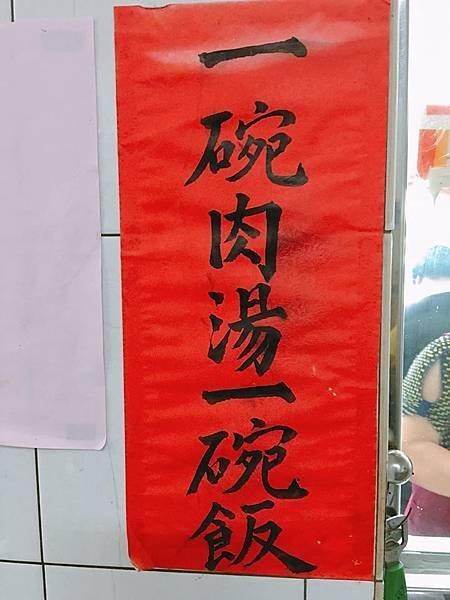 一碗肉湯一碗飯